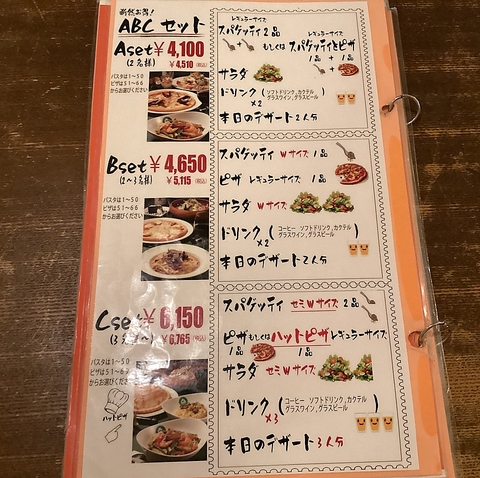 断然お得!
ABC セット
Aset ¥4,100
(2名様) ¥4,510 (税込)
パスタは1～50
ピザは51～66
からお選びください
レギュラーサイズ
スパゲッティ2品
レギュラーサイズ
もしくは スパゲッティとピザ
1品 + 1品
サラダ
ドリンク (ソフトドリンク、カクテル
グラスワイン、グラスビール)
×2
本日のデザート2人分
Bset ¥4,650
(2~3名様) ¥5,115 (税込)
パスタは1～50
ピザは51～66
からお選びください
スパゲッティ Wサイズ 1品
ピザ レギュラーサイズ 1品
サラダ Wサイズ
ドリンク (コーヒー ソフトドリンク、カクテル
グラスワイン、グラスビール)
×2
本日のデザート2人分
Cset ¥6,150
¥6,765 (税込)
パスタは1～50
ピザは51～
からお選びくださ
ハットピザ
スパゲッティ セミWサイズ 2品
ピザもしくはハットピザ レギュラーサイズ
1品 1品
サラダ セミWサイズ
ドリンク (コーヒー ソフトドリンク、カクテル
グラスワイン、グラスビール)
×3
本日のデザート3人分